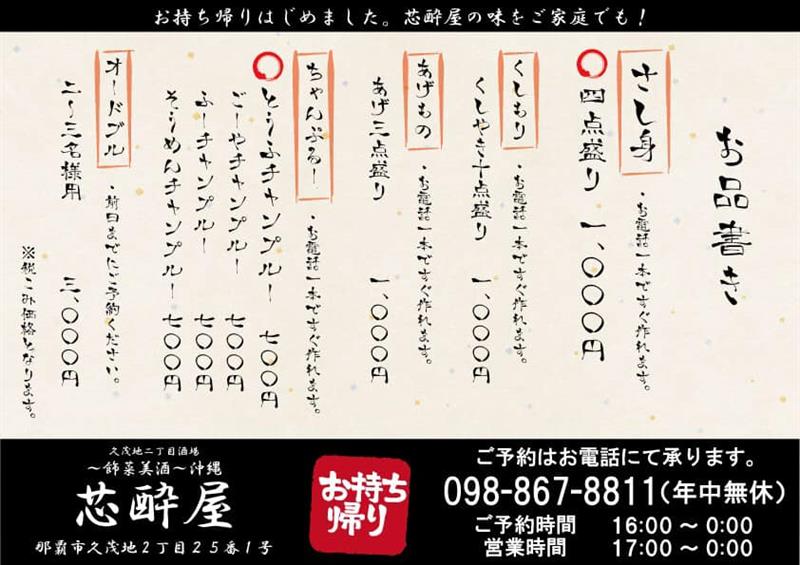 お持ち帰りはじめました。芯酔屋の味をご家庭でも！
お品書き
さし身
・お電話一本ですぐ作れます。
四点盛り 一、〇〇〇円
くしもり
・お電話一本ですぐ作れます。
くしやき十点盛り 一、〇〇〇円
あげもの
・お電話一本ですぐ作れます。
あげ三点盛り 一、〇〇〇円
ちゃんぷるー
・お電話一本ですぐ作れます。
とうふチャンプルー 七〇〇円
ごーやチャンプルー 七〇〇円
ふーチャンプルー 七〇〇円
そうめんチャンプルー 七〇〇円
オードブル
・前日までにご予約ください。
二～三名様用 三、〇〇〇円
※税こみ価格となります。
久茂地二丁目酒場
～飾菜美酒～沖縄
芯酔屋
那覇市久茂地2丁目25番1号
お持ち
帰り
ご予約はお電話にて承ります。
098-867-8811（年中無休）
ご予約時間 16:00 ～ 0:00
営業時間 17:00 ～ 0:00